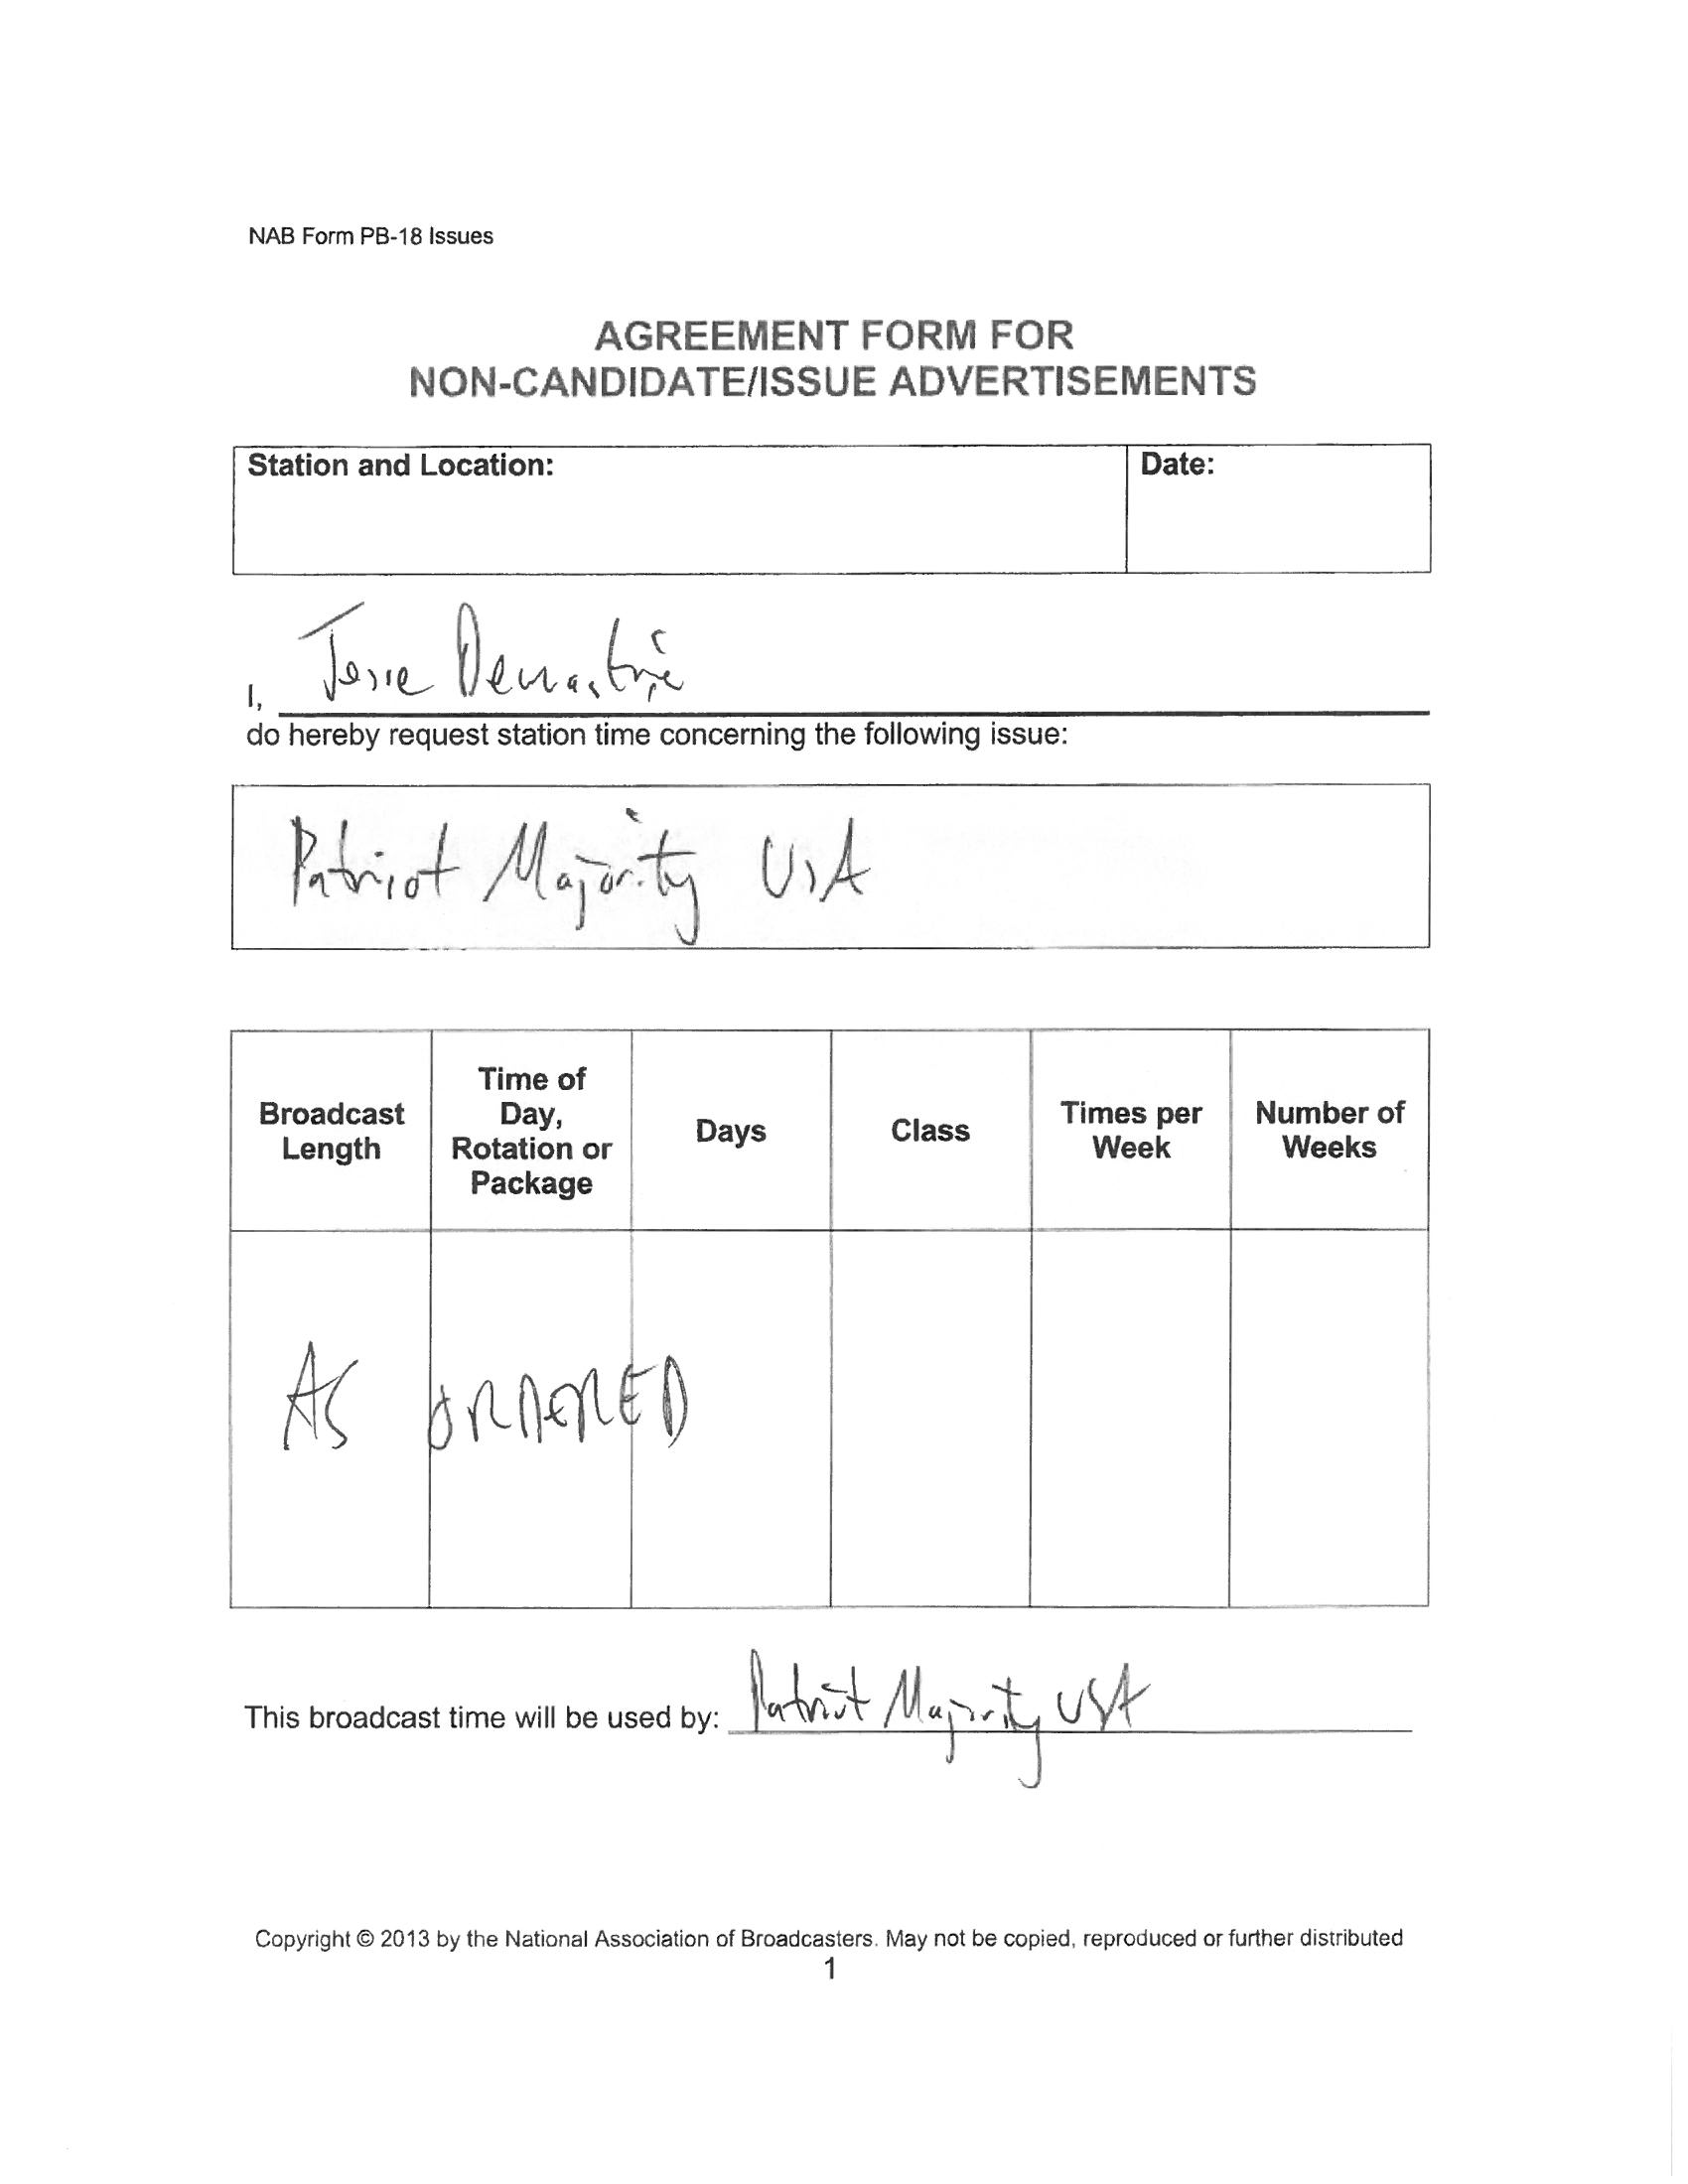 NAB Form PB-18 Issues
AGREEMENT FORM FOR
NON-CANDIDATE/ISSUE ADVERTISEMENTS
Station and Location:
Date:
I, Jesse Demastrie
do hereby request station time concerning the following issue:
Patriot Majority USA
Broadcast Length
Time of Day, Rotation or Package
Days
Class
Times per Week
Number of Weeks
AS ORDERED
This broadcast time will be used by: Patriot Majority USA
Copyright © 2013 by the National Association of Broadcasters. May not be copied, reproduced or further distributed
1